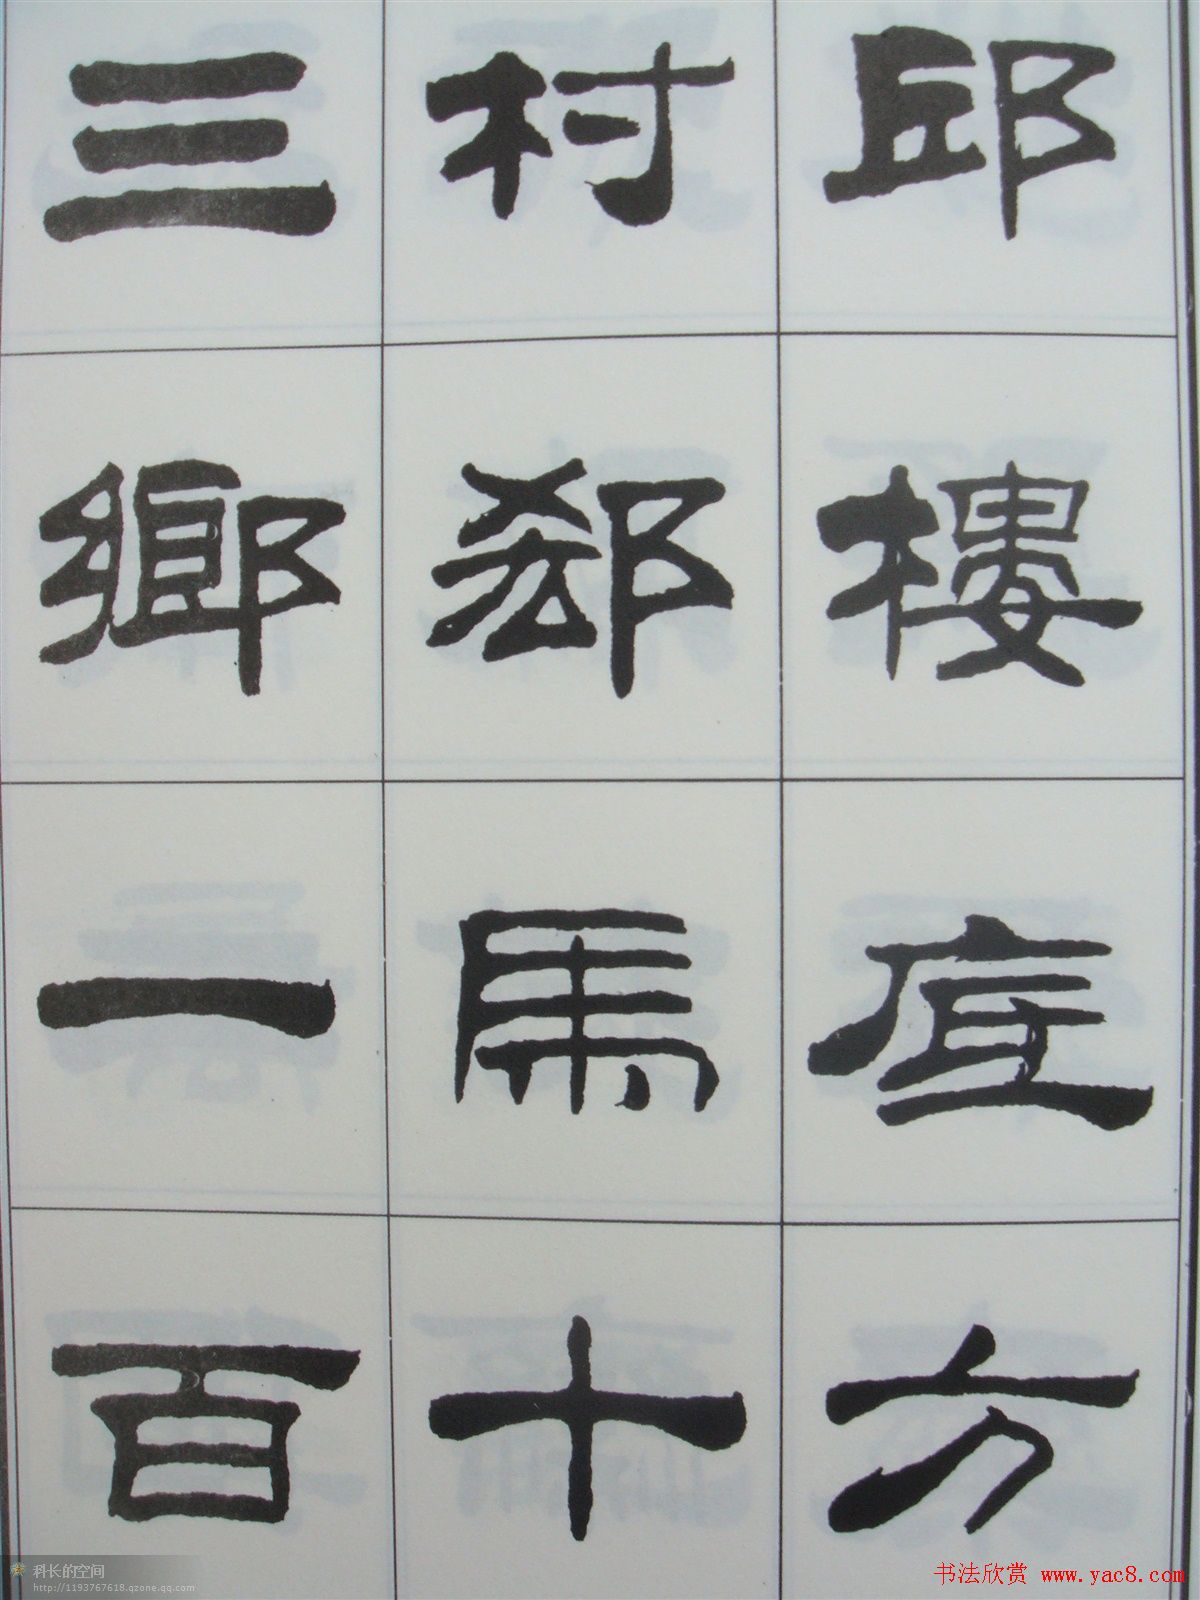 邱樓底方
村郄馬十
三鄉一百
科长的空间
http://1193767618.qzone.qq.com
书法欣赏 www.yac8.com